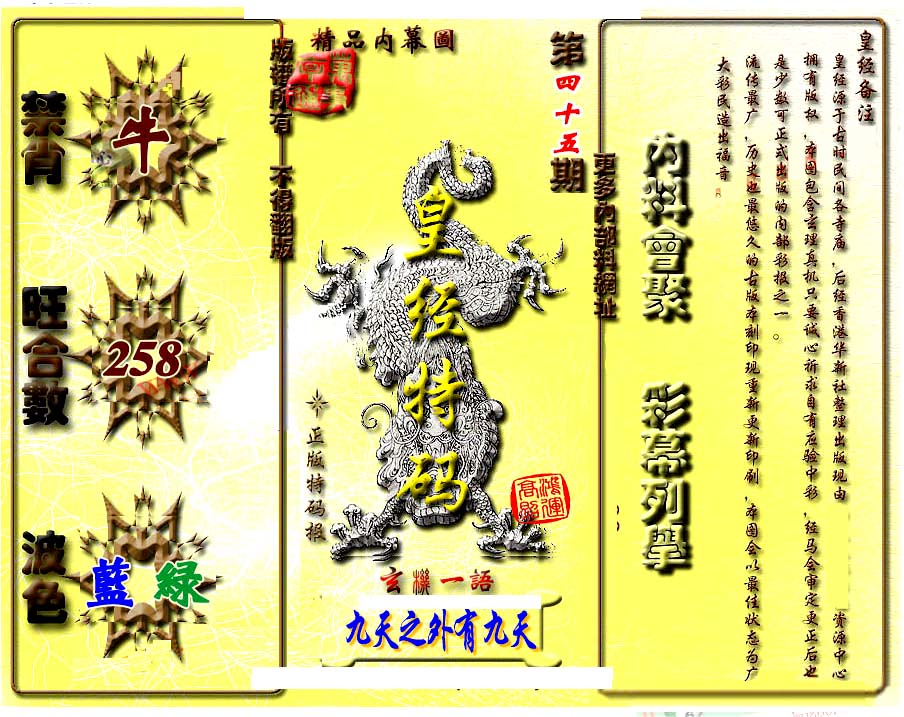 精品内幕圖
第四十五期
版權所有 不得翻版
禁肖
牛
旺合數
258
波色
藍 綠
皇经特码
正版特码报
鴻運高照
玄機一語
九天之外有九天
更多內部料網址
內料會聚
彩幕列舉
皇经备注
皇经源于古时民间各寺庙，后经香港华新社整理出版现由 资源中心
拥有版权，本图包含玄理真机只要诚心祈求自有应验中彩，经马会审定更正后也
是少数可正式出版的内部彩报之一。
流传最广，历史也最悠久的古版本刻印现重新更新印刷，本图会以最佳状态为广
大彩民造出福音